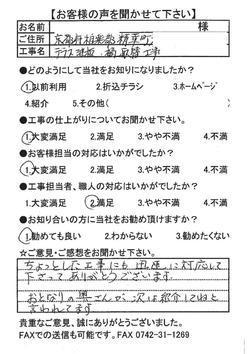 【お客様の声を聞かせて下さい】
お名前 様
ご住所 京都府相楽郡精華町
工事名 テラス 波板 取替工事
●どのようにして当社をお知りになりましたか?
①以前利用 2.折込チラシ 3.ホームページ
4.紹介 5.その他(
●工事の仕上がりについてお聞かせ下さい。
①大変満足 2.満足 3.やや不満 4.不満
●お客様担当の対応はいかがでしたか?
①大変満足 2.満足 3.やや不満 4.不満
●工事担当者、職人の対応はいかがでしたか?
1.大変満足 ②満足 3.やや不満 4.不満
●お知り合いの方に当社をお勧め頂けますか?
①勧めても良い 2.わからない 3.勧めたくない
☆ご意見・ご感想をお聞かせ下さい。
ちょっとした工事にも迅速に対応して
下さってありがとうございます。
おとなりの奥さんが、次は紹介してねと
言われてます
貴重なご意見、誠にありがとうございました。
FAXでの送信も可能です。FAX 0742-31-1269